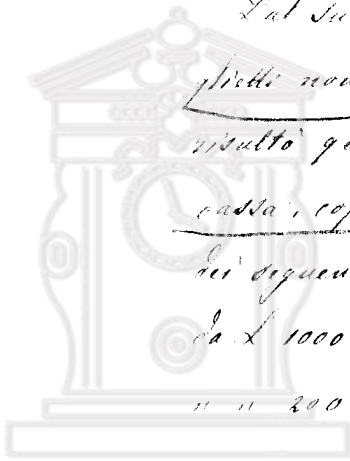 Dal su
glietti non
risultò ge
cassa, cop
dei seguen
da L 1000
" " 200